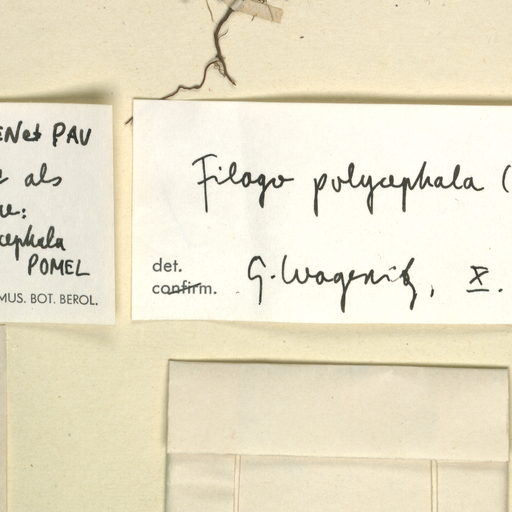 PAV
als
POMEL
MUS. BOT. BEROL.
Filago polycephala (
det.
confirm.
G. Wagenitz, X.